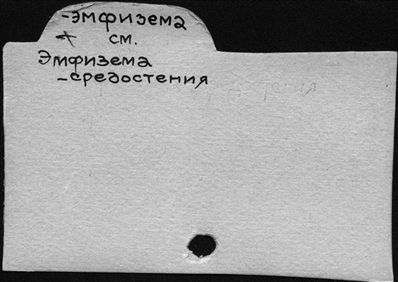 -эмфизема
см.
Эмфизема
-средостения